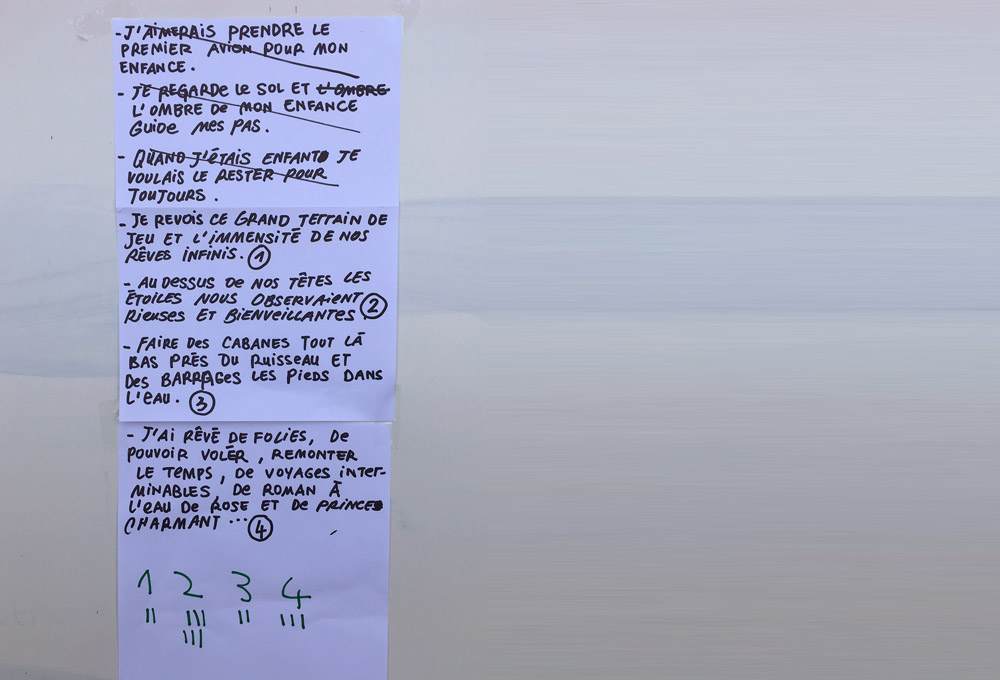 - J'AIMERAIS PRENDRE LE
PREMIER AVION POUR MON
ENFANCE.
- JE REGARDE LE SOL ET L'OMBRE
L'OMBRE DE MON ENFANCE
GUIDE MES PAS.
- QUAND J'ÉTAIS ENFANT JE
VOULAIS LE RESTER POUR
TOUJOURS.
- JE REVOIS CE GRAND TERRAIN DE
JEU ET L'IMMENSITÉ DE NOS
RÊVES INFINIS. 1
- AU DESSUS DE NOS TÊTES LES
ÉTOILES NOUS OBSERVAIENT
RIEUSES ET BIENVEILLANTES 2
- FAIRE DES CABANES TOUT LÀ
BAS PRÈS DU RUISSEAU ET
DES BARRAGES LES PIEDS DANS
L'EAU. 3
- J'AI RÊVÉ DE FOLIES, DE
POUVOIR VOLER, REMONTER
LE TEMPS, DE VOYAGES INTER-
MINABLES, DE ROMAN À
L'EAU DE ROSE ET DE PRINCE
CHARMANT ... 4
1 2 3 4
II III II III
III